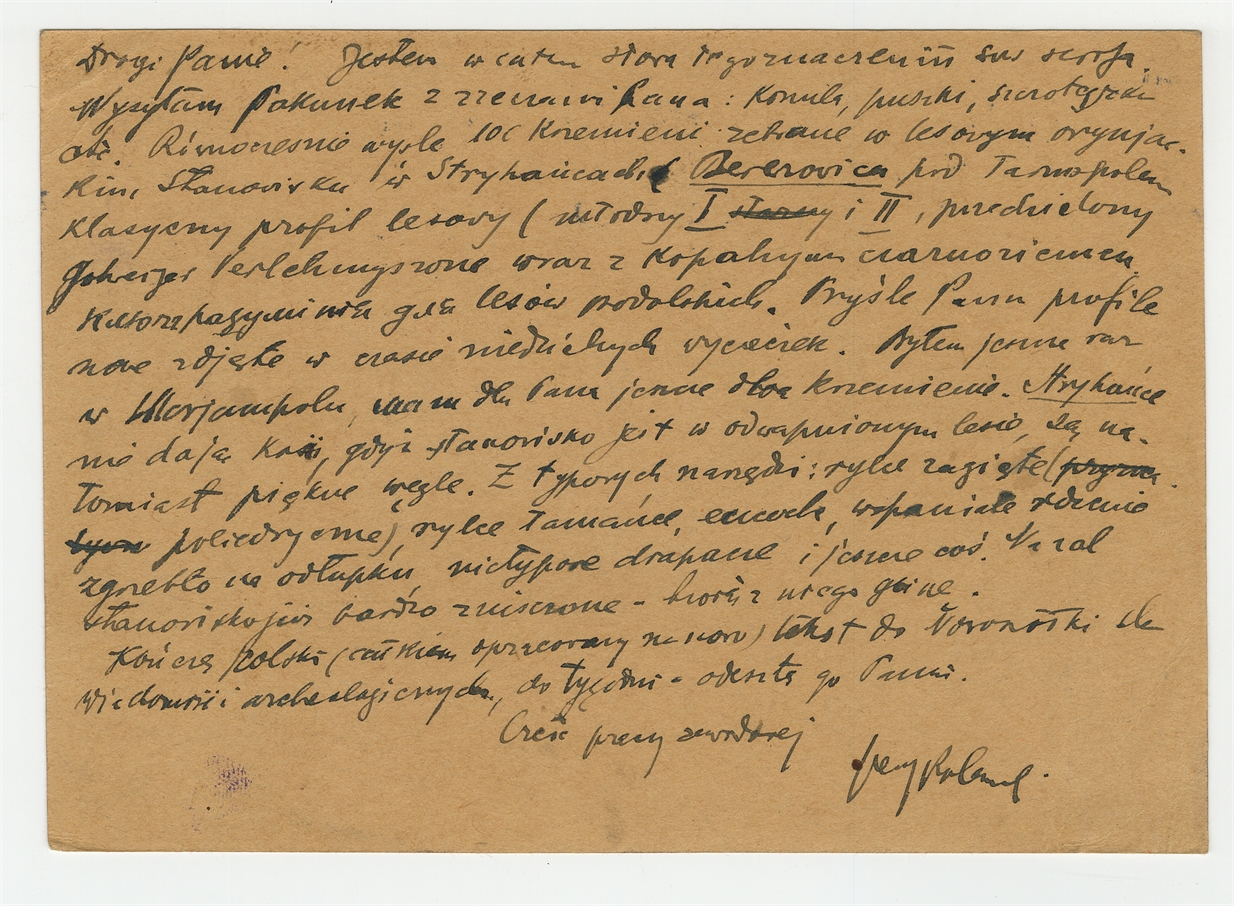 Drogi Panie! Jestem w całem słowa tego znaczeniu
Wysyłam Pakunek z rzeczami Pana: Konula, puszki,
etc. Równocześnie wyślę 100 Krzemieni zebrane w lesowym oryniac-
kim Stanowisku w Stryhańcach. Berezovica pod Tarnopolem
klasyczny profil lesowy (młodszy I starszy i II, przedzielony
wraz z kopalnym czarnoziemem
dla lesów podolskich. Pryślę Panu profile
nowe zdjęte w czasie niedzielnych wycieczek. Byłem jeszcze raz
w Marjampolu, mam dla Pana jeszcze dwa krzemienie. Stryhańce
nie dają kości, gdyż stanowisko jest w odwapnionym lesie, są na-
tomiast piękne węgle. Z typowych narzędzi: rylce zagięte (pryzma
tyczn poliedryczne), rylce łamańce, encoche, wspaniałe rdzenie
zgrzebło na odłupku, nietypowe drapacze i jeszcze coś. Na żal
stanowisko już bardzo zniszczone - biorą z niego glinę.
Kończę polski (całkiem opracowany na nowo) tekst do Nowonośki dla
Wiadomości archeologicznych, do tygodni - odeszlę go Panu.
Cześć pracy zawodowej
Jerzy Poland